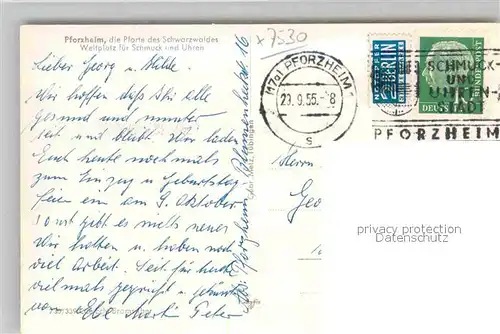 Pforzheim, die Pforte des Schwarzwaldes
Weltplatz für Schmuck und Uhren
x 7530
Lieber Georg u. Hilde.
Wir hoffen daß Ihr alle
gesund und munter
seit und bleibt. Wir laden
Euch heute nochmals
zum Einzug u. Geburtstag
feiern ein am 9. Oktober
Sonst gibt es nichts neues
Wir hatten u. haben noch
viel Arbeit. Seit für heute
vielmals gegrüßt u. geküsst
von Peter
Pforzheim, Blumenheckstr. 16
(17a) PFORZHEIM
29.9.55.-8
s
NOTOPFER
2 BERLIN
STEUERMARKE
DEUTSCHE BUNDESPOST
SCHMUCK-
UND
UHREN-
STADT
PFORZHEIM
Herrn
Geo
privacy protection
Datenschutz